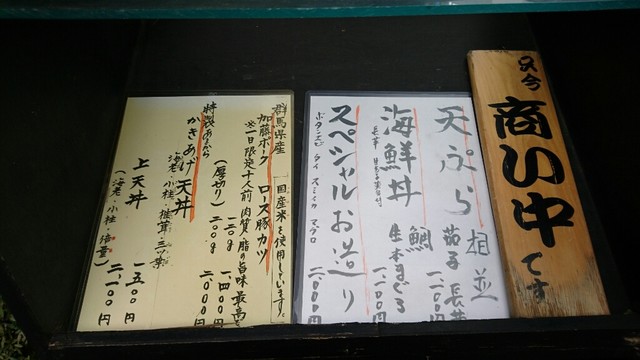 只今
商い中
です
天ぷら 相並
茄子 長芋
一、二〇〇円
海鮮丼 鯛 生本まぐろ
一、二〇〇円
スペシャルお造り
ボタンエビ タイ スミイカ マグロ
二、〇〇〇円
国産米を使用しています。
群馬県産
加藤ポーク ロース豚カツ
※一日限定十人前 肉質、脂の旨味最高
一二〇g 一、四〇〇円
(厚切り) 二〇〇g 二、〇〇〇円
特製あまから
かきあげ天丼
海老・小柱・椎茸・三ツ葉
上天丼 一、五〇〇円
(海老・小柱・倍量) 二、一〇〇円